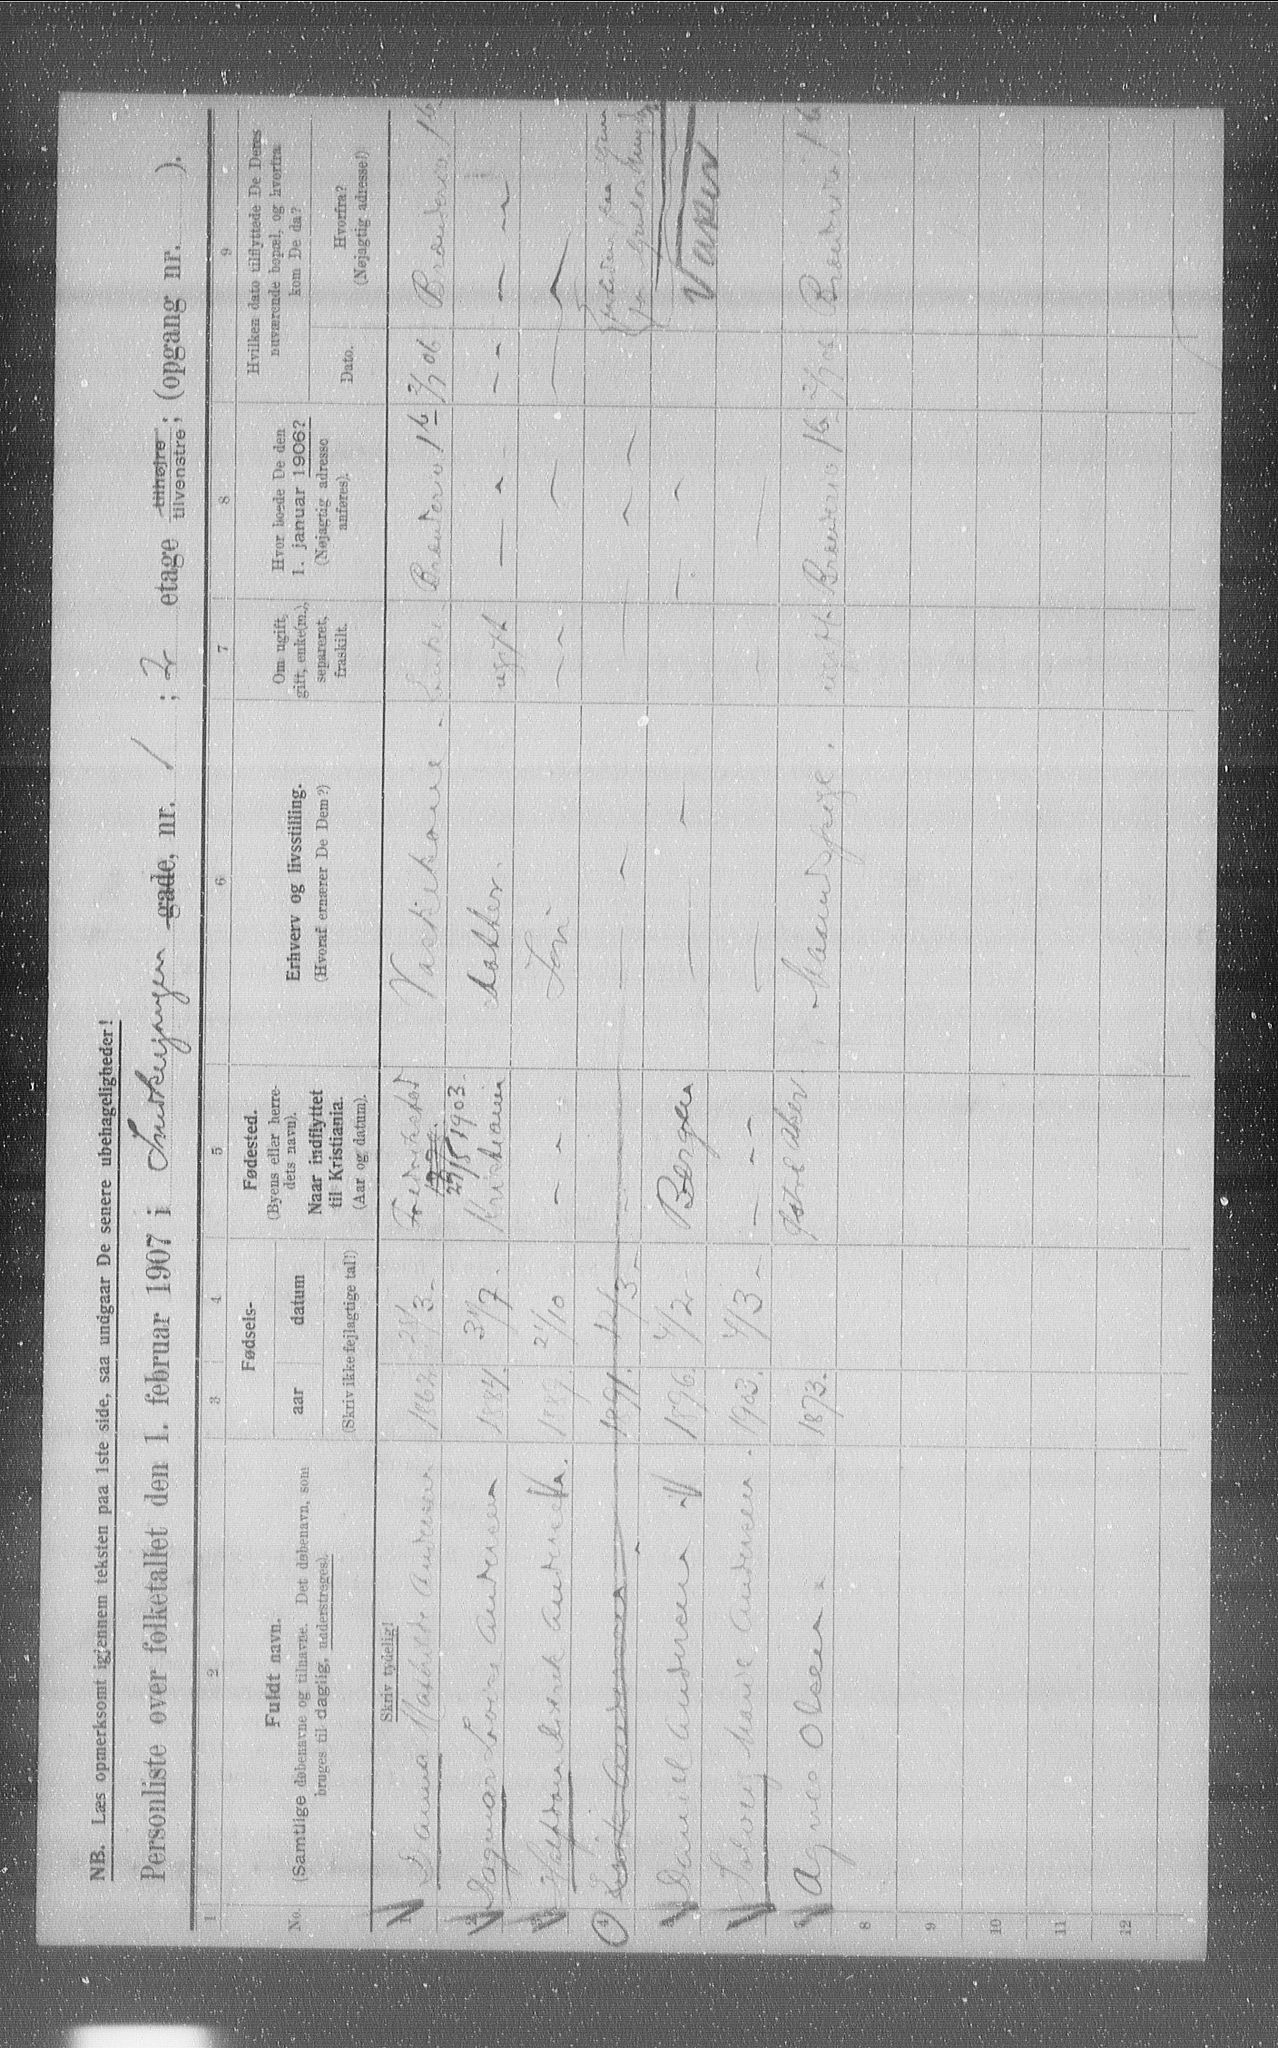 NB. Læs opmerksomt igjennem teksten paa 1ste side, saa undgaar De senere ubehageligheder!
Personliste over folketallet den 1. februar 1907 i Smedkergangen gade, nr. 1 ; 2 etage tilhøjre tilvenstre; (opgang nr. ).
1 2 3 4 5 6 7 8 9
No.
Fuldt navn.
(Samtlige døbenavne og tilnavne. Det døbenavn, som
bruges til daglig, understreges).
Skriv tydelig!
Fødsels-
aar datum
(Skriv ikke fejlagtige tal!)
Fødested.
(Byens eller herre-
dets navn).
Naar indflyttet
til Kristiania.
(Aar og datum).
Erhverv og livsstilling.
(Hvoraf ernærer De Dem?)
Om ugift,
gift, enke(m.),
separeret,
fraskilt.
Hvor boede De den
1. januar 1906?
(Nøjagtig adresse
anføres).
Hvilken dato tilflyttede De Deres
nuværende bopæl, og hvorfra
kom De da?
Dato.
Hvorfra?
(Nøjagtig adresse!)
1 Andersen 1862 Fredrikstad Vaskekone - Enke Brenneriv 16 2/7 06 Brenneriv 16
29/5 1903.
2 Dagmar Lovise Andersen 1884. 31/7. Kristiania datter. ugift — " — - - — —
3 Halfdan Andersen 1887. 21/10 - - Søn — — —
4 Andersen 1891. /3 - — — —
5 Daniel Andersen 1896 4/2 - Bergen — - — -
Vaxen
6 Solveig Marie Andersen. 1903. 4/3 - — - - —
7 Agnes Olsen. 1873. ugift Brenneriv 16 2/7 06 Brenneriv 16
8
9
10
11
12